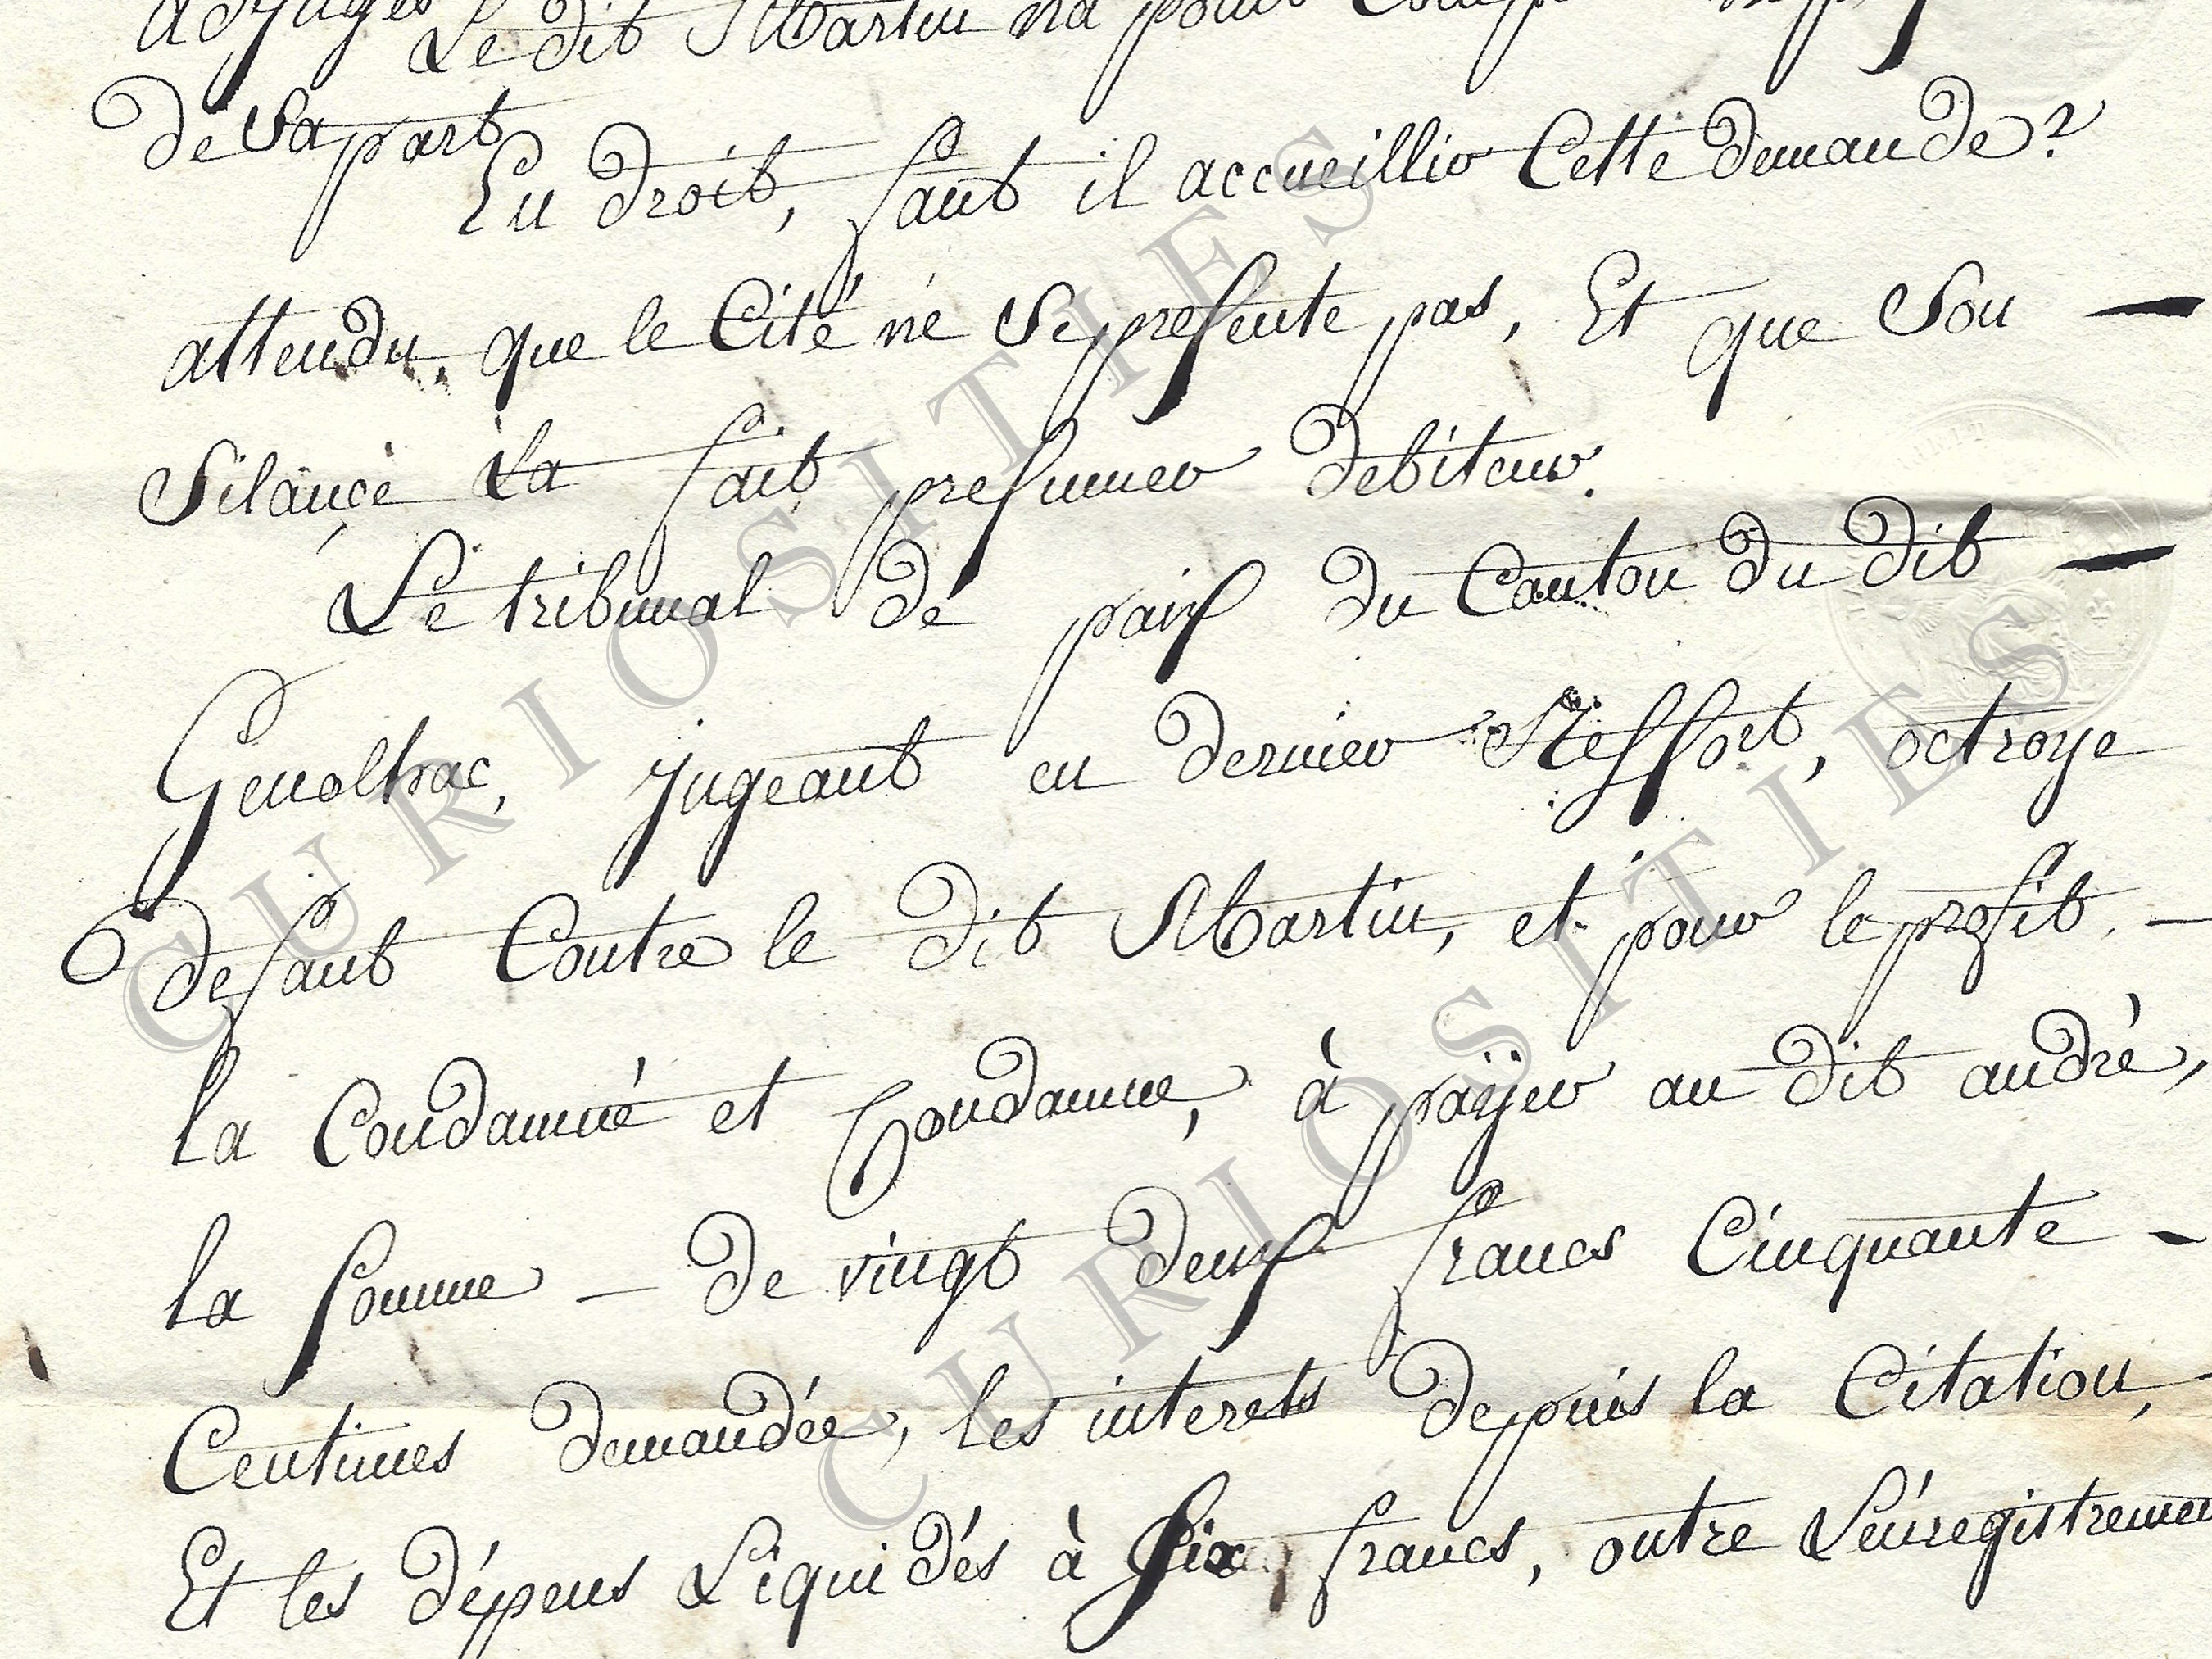 adjuges
Le dit Martin na point
de Sa part
En droit, faut il accueillir Cette demande?
attendu, que le Cité ne Se presente pas, Et que Son —
Silançe La fait presumer debiteur.
Le tribunal de paix du Canton du dit —
Genolhac, jugeant en dernier Ressort, octroye
defaut Contre le dit Martin, et pour le profit. —
la Condamné et Condamne, à païjer au dit andré,
la somme — de vingt deux francs Cinquante —
Centimes demandée, les interets depuis la Citation, -
Et les dépens Liquidés à Six francs, outre L'énregistremen
CURIOSITIES
CURIOSITIES